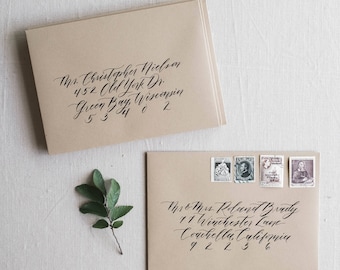 Mr. Christopher Nielson
452 Old York Dr.
Green Bay, Wisconsin
53402
Mr & Mrs. Roland Brady
77 Winchester Lane
Coachella, California
92236